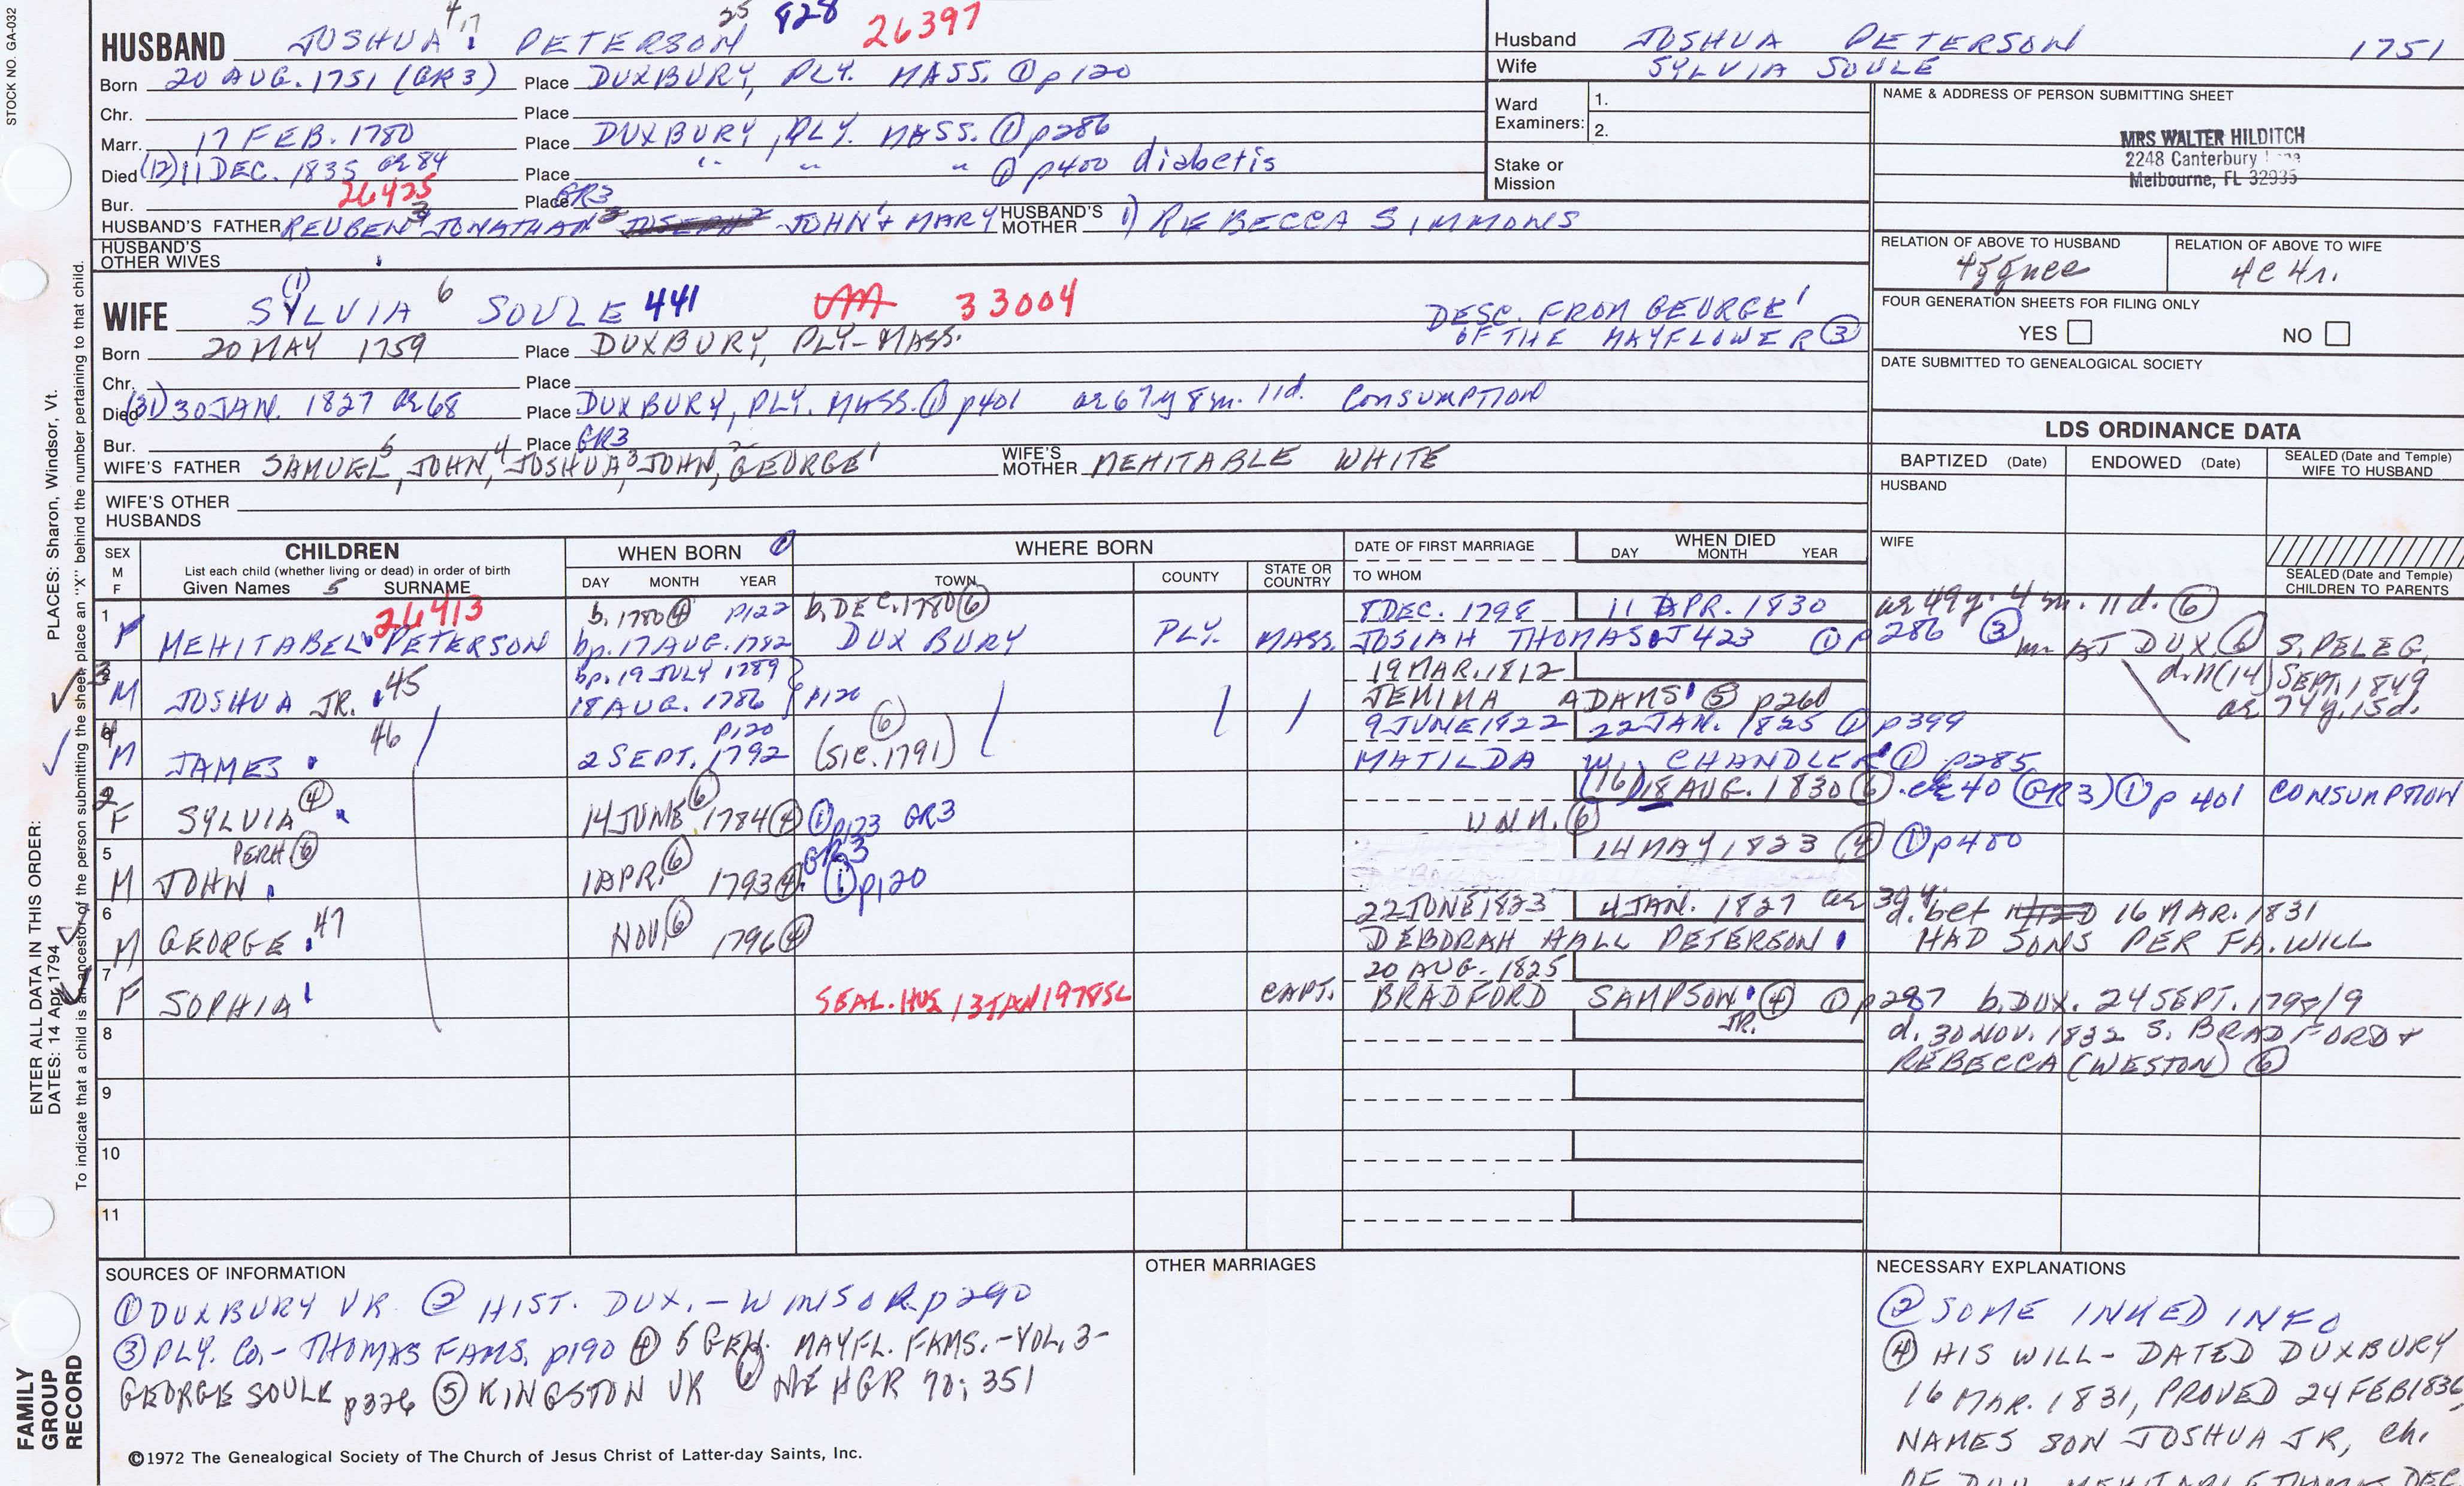 STOCK NO. GA-032
4 17 25 828 26397
HUSBAND JOSHUA PETERSON
Born 20 AUG. 1751 (GR3) Place DUXBURY, PLY. MASS. ① p120
Chr. Place
Marr. 17 FEB. 1780 Place DUXBURY, PLY. MASS. ① p286
Died (12) 11 DEC. 1835 ae 84 Place " " " ① p400 diabetis
Bur. 26425 Place GR3
HUSBAND'S FATHER REUBEN JONATHAN JOHN & MARY HUSBAND'S MOTHER 1) REBECCA SIMMONS
HUSBAND'S OTHER WIVES
Husband JOSHUA PETERSON 1751
Wife SYLVIA SOULE
Ward Examiners: 1.
2.
Stake or Mission
NAME & ADDRESS OF PERSON SUBMITTING SHEET
MRS WALTER HILDITCH
2248 Canterbury Lane
Melbourne, FL 32935
RELATION OF ABOVE TO HUSBAND RELATION OF ABOVE TO WIFE
4c4r.
FOUR GENERATION SHEETS FOR FILING ONLY
YES NO
DATE SUBMITTED TO GENEALOGICAL SOCIETY
(1) 6
WIFE SYLVIA SOULE 441 33004 DESC. FROM GEORGE 1
OF THE MAYFLOWER ③
Born 20 MAY 1759 Place DUXBURY, PLY-MASS.
Chr. Place
Died (31) 30 JAN. 1827 ae 68 Place DUXBURY, PLY. MASS. ① p401 ae 67y 8m. 11d. CONSUMPTION
Bur. Place GR3
WIFE'S FATHER SAMUEL 5, JOHN 4, JOSHUA 3, JOHN 2, GEORGE 1 WIFE'S MOTHER MEHITABLE WHITE
WIFE'S OTHER HUSBANDS
LDS ORDINANCE DATA
BAPTIZED (Date) ENDOWED (Date) SEALED (Date and Temple) WIFE TO HUSBAND
HUSBAND
WIFE
SEALED (Date and Temple) CHILDREN TO PARENTS
SEX M F
CHILDREN
List each child (whether living or dead) in order of birth
Given Names 5 SURNAME
WHEN BORN ①
DAY MONTH YEAR
WHERE BORN
TOWN COUNTY STATE OR COUNTRY
DATE OF FIRST MARRIAGE
TO WHOM
WHEN DIED
DAY MONTH YEAR
1 26413 b. 1780 ④ p122 b. DEC. 1780 ⑥ 8 DEC. 1798 11 APR. 1830 ae 49y. 4m. 11d. ⑥
F MEHITABEL PETERSON bp. 17 AUG. 1782 DUXBURY PLY. MASS. JOSIAH THOMAS J423 ① p286 ③ m. AT DUX. ⑥ S. PELEG,
d. 11 (14) SEPT. 1849
ae 74y. 15d.
3 bp. 19 JULY 1789 19 MAR. 1812
M JOSHUA JR. 45 18 AUG. 1786 p120 JEMIMA ADAMS ⑤ p260
4 46 p120 ⑥ 9 JUNE 1822 22 JAN. 1825 ① p399
M JAMES 2 SEPT. 1792 (SIC. 1791) MATILDA W. CHANDLER ① p285
2 (16) 18 AUG. 1830 ⑥ ae 40 (GR3) ① p 401 CONSUMPTION
F SYLVIA ④ 14 JUNE ⑥ 1784 ④ ① p123 GR3 UNM. ⑥
5 PERH ⑥ GR3 14 MAY 1823 ④ ① p400
M JOHN 1 APR. ⑥ 1793 ④ ① p120
6 47 22 JUNE 1823 4 JAN. 1827 ae 30y. d. bet 16 MAR. 1831
M GEORGE NOV. ⑥ 1796 ④ DEBORAH HALL PETERSON HAD SONS PER FA. WILL
7 20 AUG. 1825
F SOPHIA SEAL. HUS 13 JAN 1978 SL CAPT. BRADFORD SAMPSON JR. ④ ① p287 b. DUX. 24 SEPT. 1798/9
8 d. 30 NOV. 1832 S. BRADFORD &
REBECCA (WESTON) ⑥
9
10
11
SOURCES OF INFORMATION
① DUXBURY VR. ② HIST. DUX. - WINSOR p290
③ PLY. CO. - THOMAS FAMS. p190 ④ 5 GEN. MAYFL. FAMS. - VOL. 3 -
GEORGE SOULE p326 ⑤ KINGSTON VR ⑥ NEHGR 70; 351
OTHER MARRIAGES
NECESSARY EXPLANATIONS
② SOME INKED INFO
④ HIS WILL - DATED DUXBURY
16 MAR. 1831, PROVED 24 FEB 1836,
NAMES SON JOSHUA JR, ch.
©1972 The Genealogical Society of The Church of Jesus Christ of Latter-day Saints, Inc.
ENTER ALL DATA IN THIS ORDER:
DATES: 14 Apr. 1794
PLACES: Sharon, Windsor, Vt.
To indicate that a child is an ancestor of the person submitting the sheet, place an "X" behind the number pertaining to that child.
FAMILY GROUP RECORD